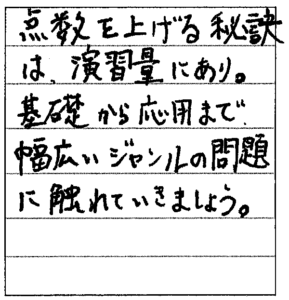 点数を上げる秘訣
は、演習量にあり。
基礎から応用まで
幅広いジャンルの問題
に触れていきましょう。